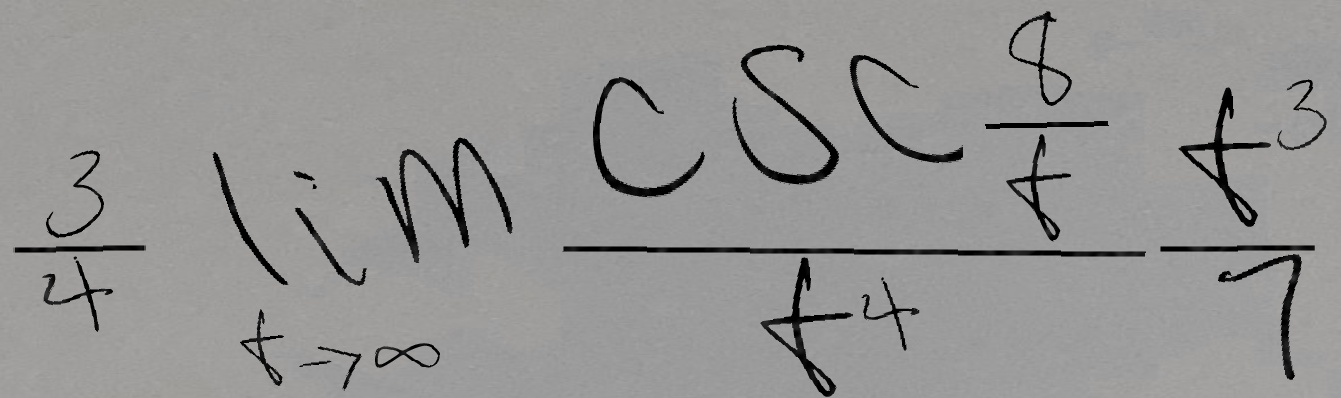 \frac{3}{4} \lim_{t \to \infty} \frac{\csc \frac{8}{t}}{t^4} \frac{t^3}{7}